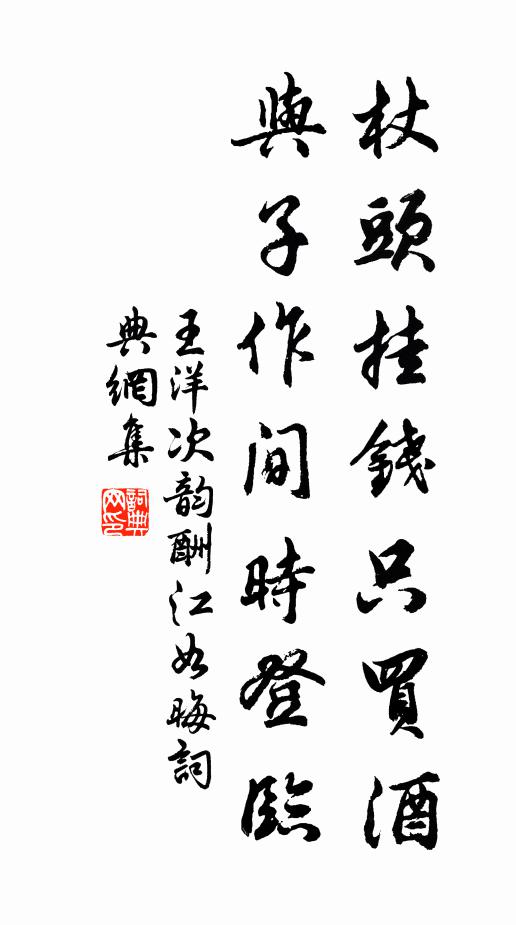 杖頭挂錢只買酒
與子作間時登臨
王洋次韵酬江如晦詞
典網集
詞典网印